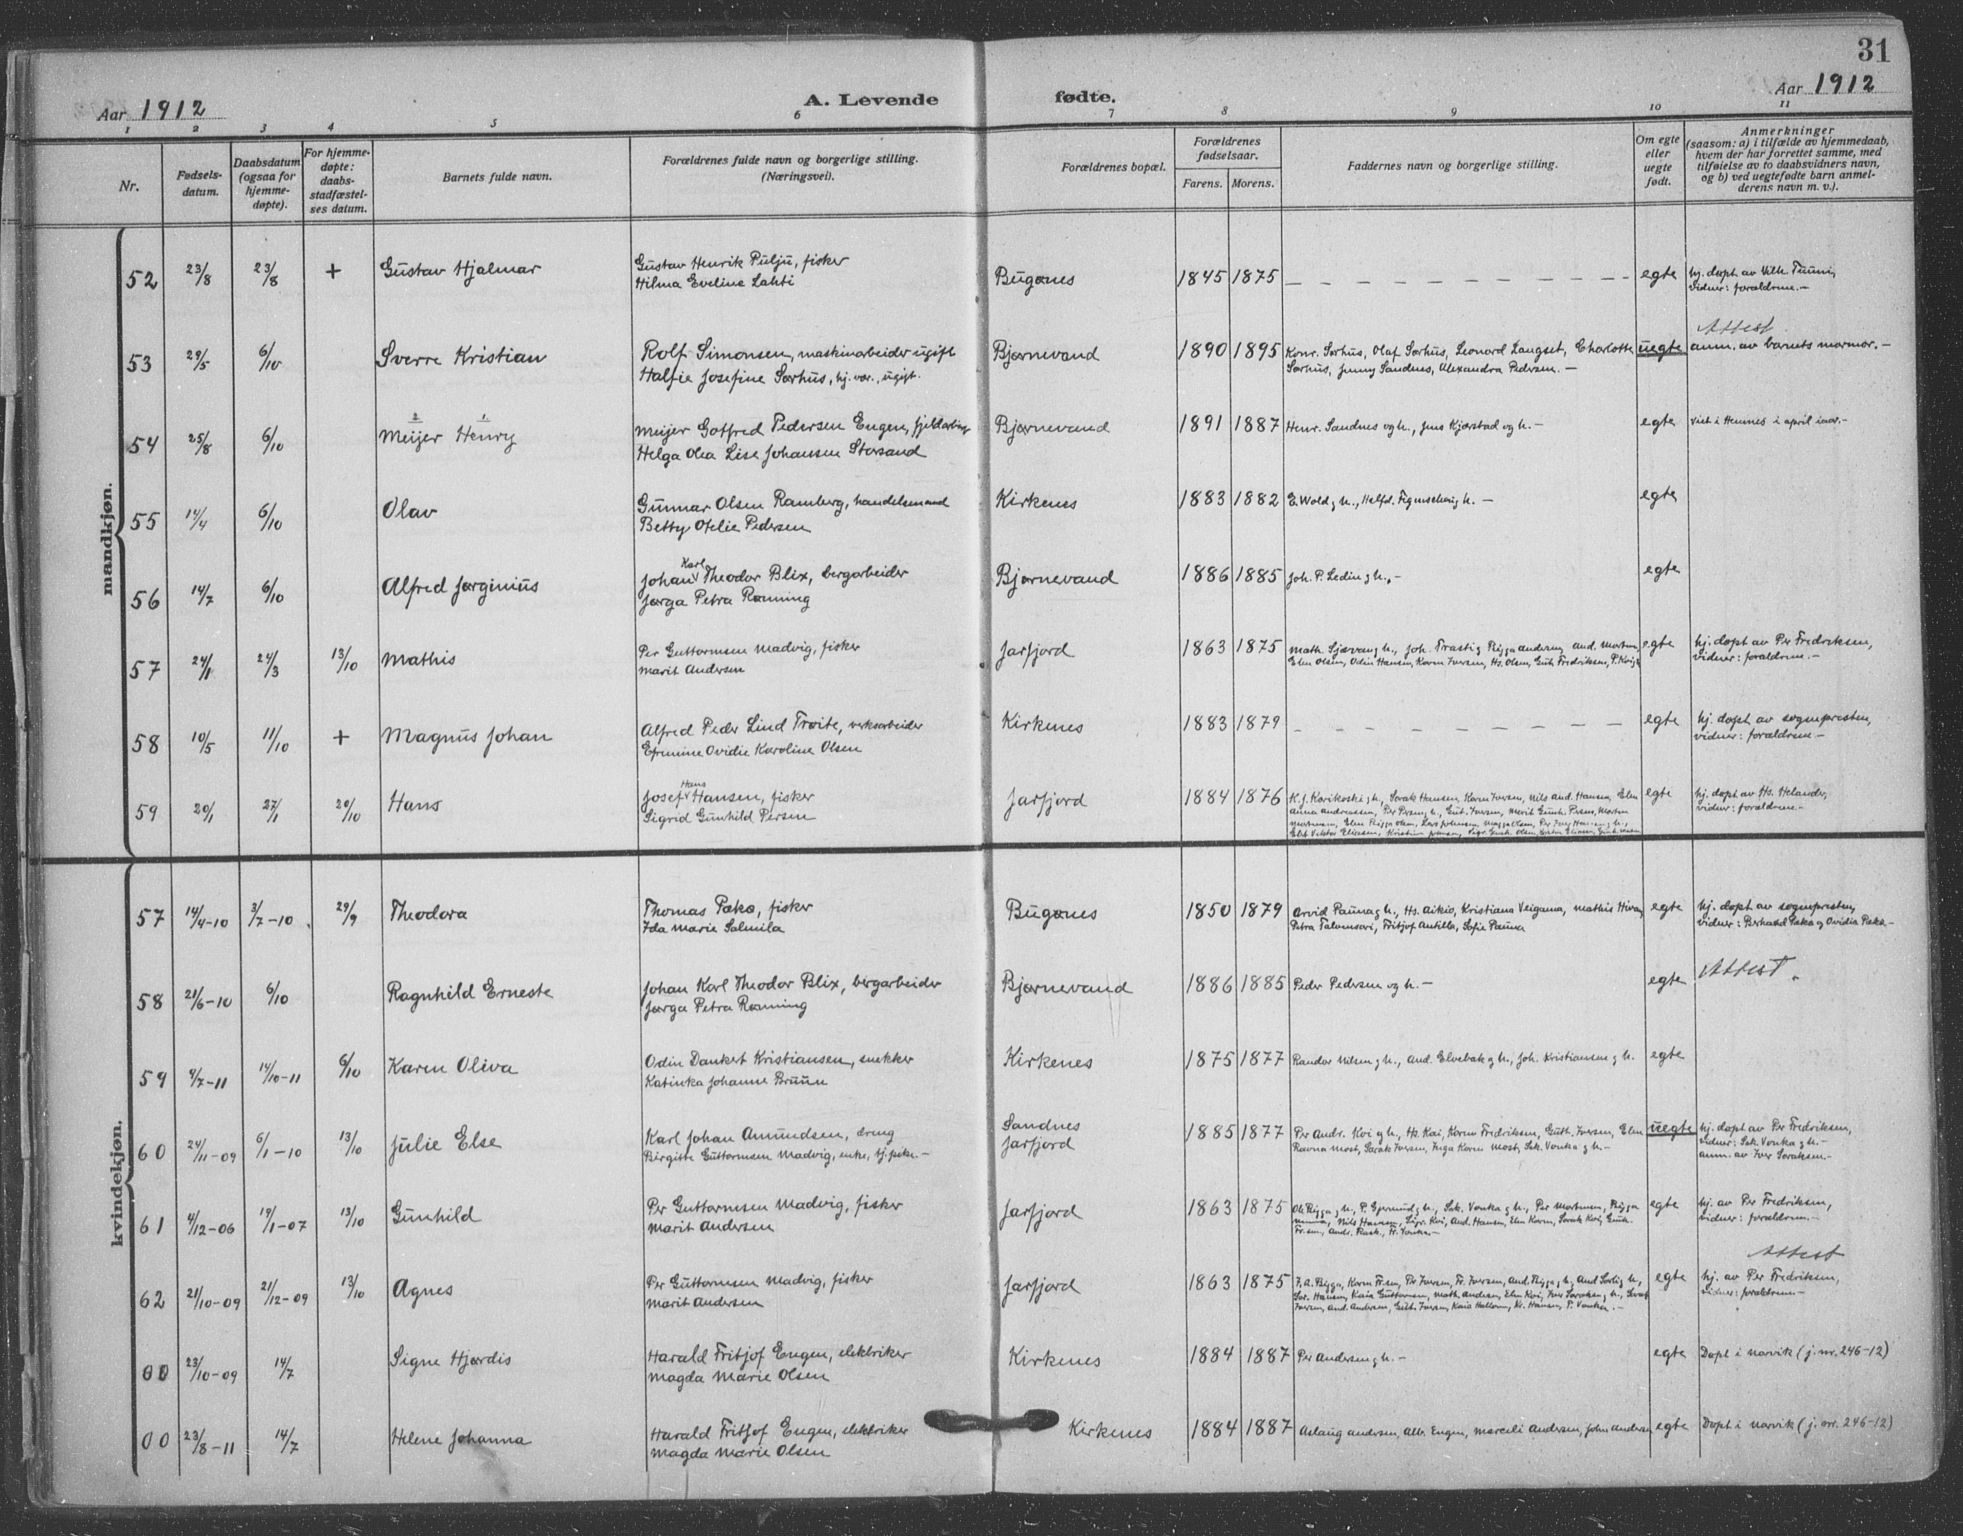 31
Aar 1912 A. Levende fødte. Aar 1912
1 2 3 4 5 6 7 8 9 10 11
Nr. Fødsels-datum. Daabsdatum (ogsaa for hjemme-døpte). For hjemme-døpte: daabs-stadfæstel-ses datum. Barnets fulde navn. Forældrenes fulde navn og borgerlige stilling. (Næringsvei). Forældrenes bopæl. Forældrenes fødselsaar. Farens. Morens. Faddernes navn og borgerlige stilling. Om egte eller uegte født. Anmerkninger (saasom: a) i tilfælde av hjemmedaab, hvem der har forrettet samme, med tilføielse av to daabsvidners navn, og b) ved uegtefødte barn anmel-derens navn m. v.).
mandkjøn.
52 23/8 23/8 + Gustav Hjalmar Gustav Henrik Pulju, fisker Bugønes 1845 1875 — — — egte hj. døpt av Vilh.
Hilma Eveline Lahti vidner: forældrene.—
Attest
53 29/5 6/10 Sverre Kristian Rolf Simonsen, maskinarbeider ugift Bjørnevand 1890 1895 Konr. Sørhus, Olaf Sørhus, Leonard Langset, Charlotte uegte anm. av barnets mormor.—
Halfie Josefine Sørhus, hj. vær., ugift. Sørhus, Jenny Sandnes, Alexandra Pedersen.—
54 25/8 6/10 Meijer Henry Meijer Gotfred Pedersen Engen, fjeldarbeid Bjørnevand 1891 1887 Henr. Sandnes og h., Jens Kjærstad og h.— egte viet i Hemnes i april iaar.—
Helga Olea Lise Johansen Storsand
55 14/4 6/10 Olav Gunnar Olsen Ramberg, handelsmand Kirkenes 1883 1882 E. Wold g h., Helfd. h.— egte
Betty Ofelie Pedersen
56 14/7 6/10 Alfred Jørginius Johan Karl Theodor Blix, bergarbeider Bjørnevand 1886 1885 Joh. P. Ledin g h.— egte
Jørga Petra Rønning
57 24/1 24/3 13/10 Mathis Per Guttormsen Madvig, fisker Jarfjord 1863 1875 Math. Sjøvan g h., Joh. Trasti g Rigga Andersen, And. Mortens egte hj. døpt av Per Fredriksen,
Marit Andersen Elen Olsen, Odin Hansen, Karen Iversen, Hs. Olsen, Gust. Fredriksen, P. vidner: forældrene.—
58 10/5 11/10 + Magnus Johan Alfred Peder Lind Trøite, verksarbeider Kirkenes 1883 1879 — — — egte hj. døpt av sognepresten,
Efemine Ovidie Karoline Olsen vidner: forældrene.—
59 20/1 27/1 20/10 Hans Josef Hans Hansen, fisker Jarfjord 1884 1876 K. J. Karikoski g h., Sarak Hansen, Karen Iversen, Nils And. Hansen, Elen egte hj. døpt av Hs. Helander,
Sigrid Gunhild Persen Anna Andreassen, Per Persen g h., Gust. Iversen, Marit Gunh. Persen, Morten vidner: forældrene.—
kvindekjøn.
57 14/4-10 3/7-10. 29/9 Theodora Thomas Pakø, fisker Bugønes 1850 1879 Arvid Pauna g h., Hs. Aikio, Kristiana Veigama, Mathis Hiva, egte hj. døpt av sognepresten,
Ida Marie Salmila Petra Talvensari, Fritjof Antilla, Sofie Pauna vidner: Berhard Pakø og Ovidia Pakø.—
58 21/6-10 6/10 Ragnhild Erneste Johan Karl Theodor Blix, bergarbeider Bjørnevand 1886 1885 Peder Pedersen og h.— egte Attest.
Jørga Petra Rønning
59 4/7-11 14/10-11 6/10 Karen Oliva Odin Dankert Kristiansen, snekker Kirkenes 1875 1877 Randor Nilsen g h., And. Elvebak g h., Joh. Kristiansen g h. egte
Katinka Johanne Bruun
60 24/11-09 6/1-10 13/10 Julie Else Karl Johan Amundsen, dreng Sandnes 1885 1877 Per Andr. Koi g h., Hs. Kai, Karen Fredriksen, Guth. Iversen, Elen uegte hj. døpt av Per Fredriksen,
Birgitte Guttormsen Madvig, enke, tj. pike.— Jarfjord Ravna Most, Sarak Iversen, Inga Karen Most, Sak. Vonka g h.— vidner: Sak. Vonka g h.—
anm. av Iver Saraksen.—
61 4/12-06 19/1-07 13/10 Gunhild Per Guttormsen Madvig, fisker Jarfjord 1863 1875 Ole Rigga g h., P. Gjermund g h., Sak. Vonka g h., Per Mortensen, Rigga egte hj. av Per Fredriksen,
Marit Andersen Nils Hansen, Sigr. Koi, And. Hansen, Elen Karen, Sarak Koi, Gunh. vidner: forældrene.—
Fr.sen, Andr. Rask., Fr. Vonka.—
Attest
62 21/10-09 21/12-09 13/10 Agnes Per Guttormsen Madvig, fisker Jarfjord 1863 1875 F. A. Rigga, Karen Fr.sen, Per Iversen, Fr. Iversen, And. Rigga g h., And. Sarli g h., egte hj. av Per Fredriksen,
Marit Andersen Sar. Hansen, Kaia Guttormsen, Math. Andersen, Elen Koi, Iver Saraksen g h., Sarak vidner: forældrene.—
Iversen, And. Andersen, Guth. Iversen, Kaia Hallonen, Kr. Hansen, P. Vonka.—
00 23/10-09 14/7 Signe Hjørdis Harald Fritjof Engen, elektriker Kirkenes 1884 1887 Per Andersen g h.— egte Døpt i Narvik (j. nr. 246-12)
Magda Marie Olsen
00 23/8-11 14/7 Helene Johanna Harald Fritjof Engen, elektriker Kirkenes 1884 1887 Aslaug Andersen, Alb. Engen, Marceli Andersen, John Andersen egte Døpt i Narvik (j. nr. 246-12)
Magda Marie Olsen